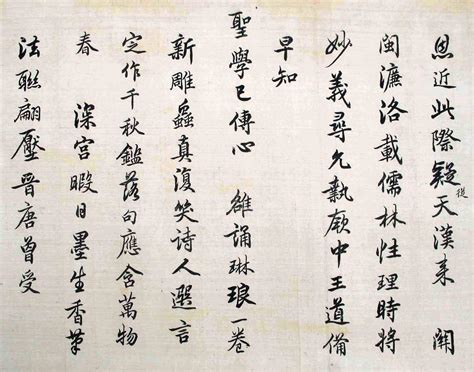 恩近此際疑從天漢来 關
閩濂洛載儒林性理時將
妙義尋允執厥中王道備
早知
聖學已傳心 雒誦琳琅一卷
新雕蟲真復笑詩人選言
定作千秋鑑落句應含萬物
春 深宮暇日墨生香筆
法聯翩壓晉唐曾受